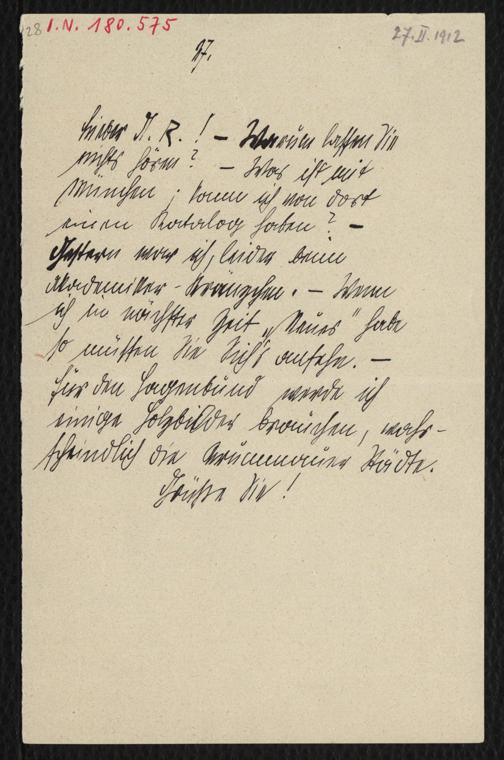 128 I.N. 180.575
27. II. 1912
27.
Lieber A. R.! – Warum lassen Sie
nichts hören? – Was ist mit
München; kann ich von dort
einen Katalog haben? –
Gestern war ich, leider beim
Akademiker-Kränzchen. – Wenn
ich in nächster Zeit „Neues“ habe
so müssten Sie Sich's ansehn. –
für den Hagenbund werde ich
einige Holzbilder brauchen, wahr-
scheindlich die Krummauer Städte.
Grüsse Sie!